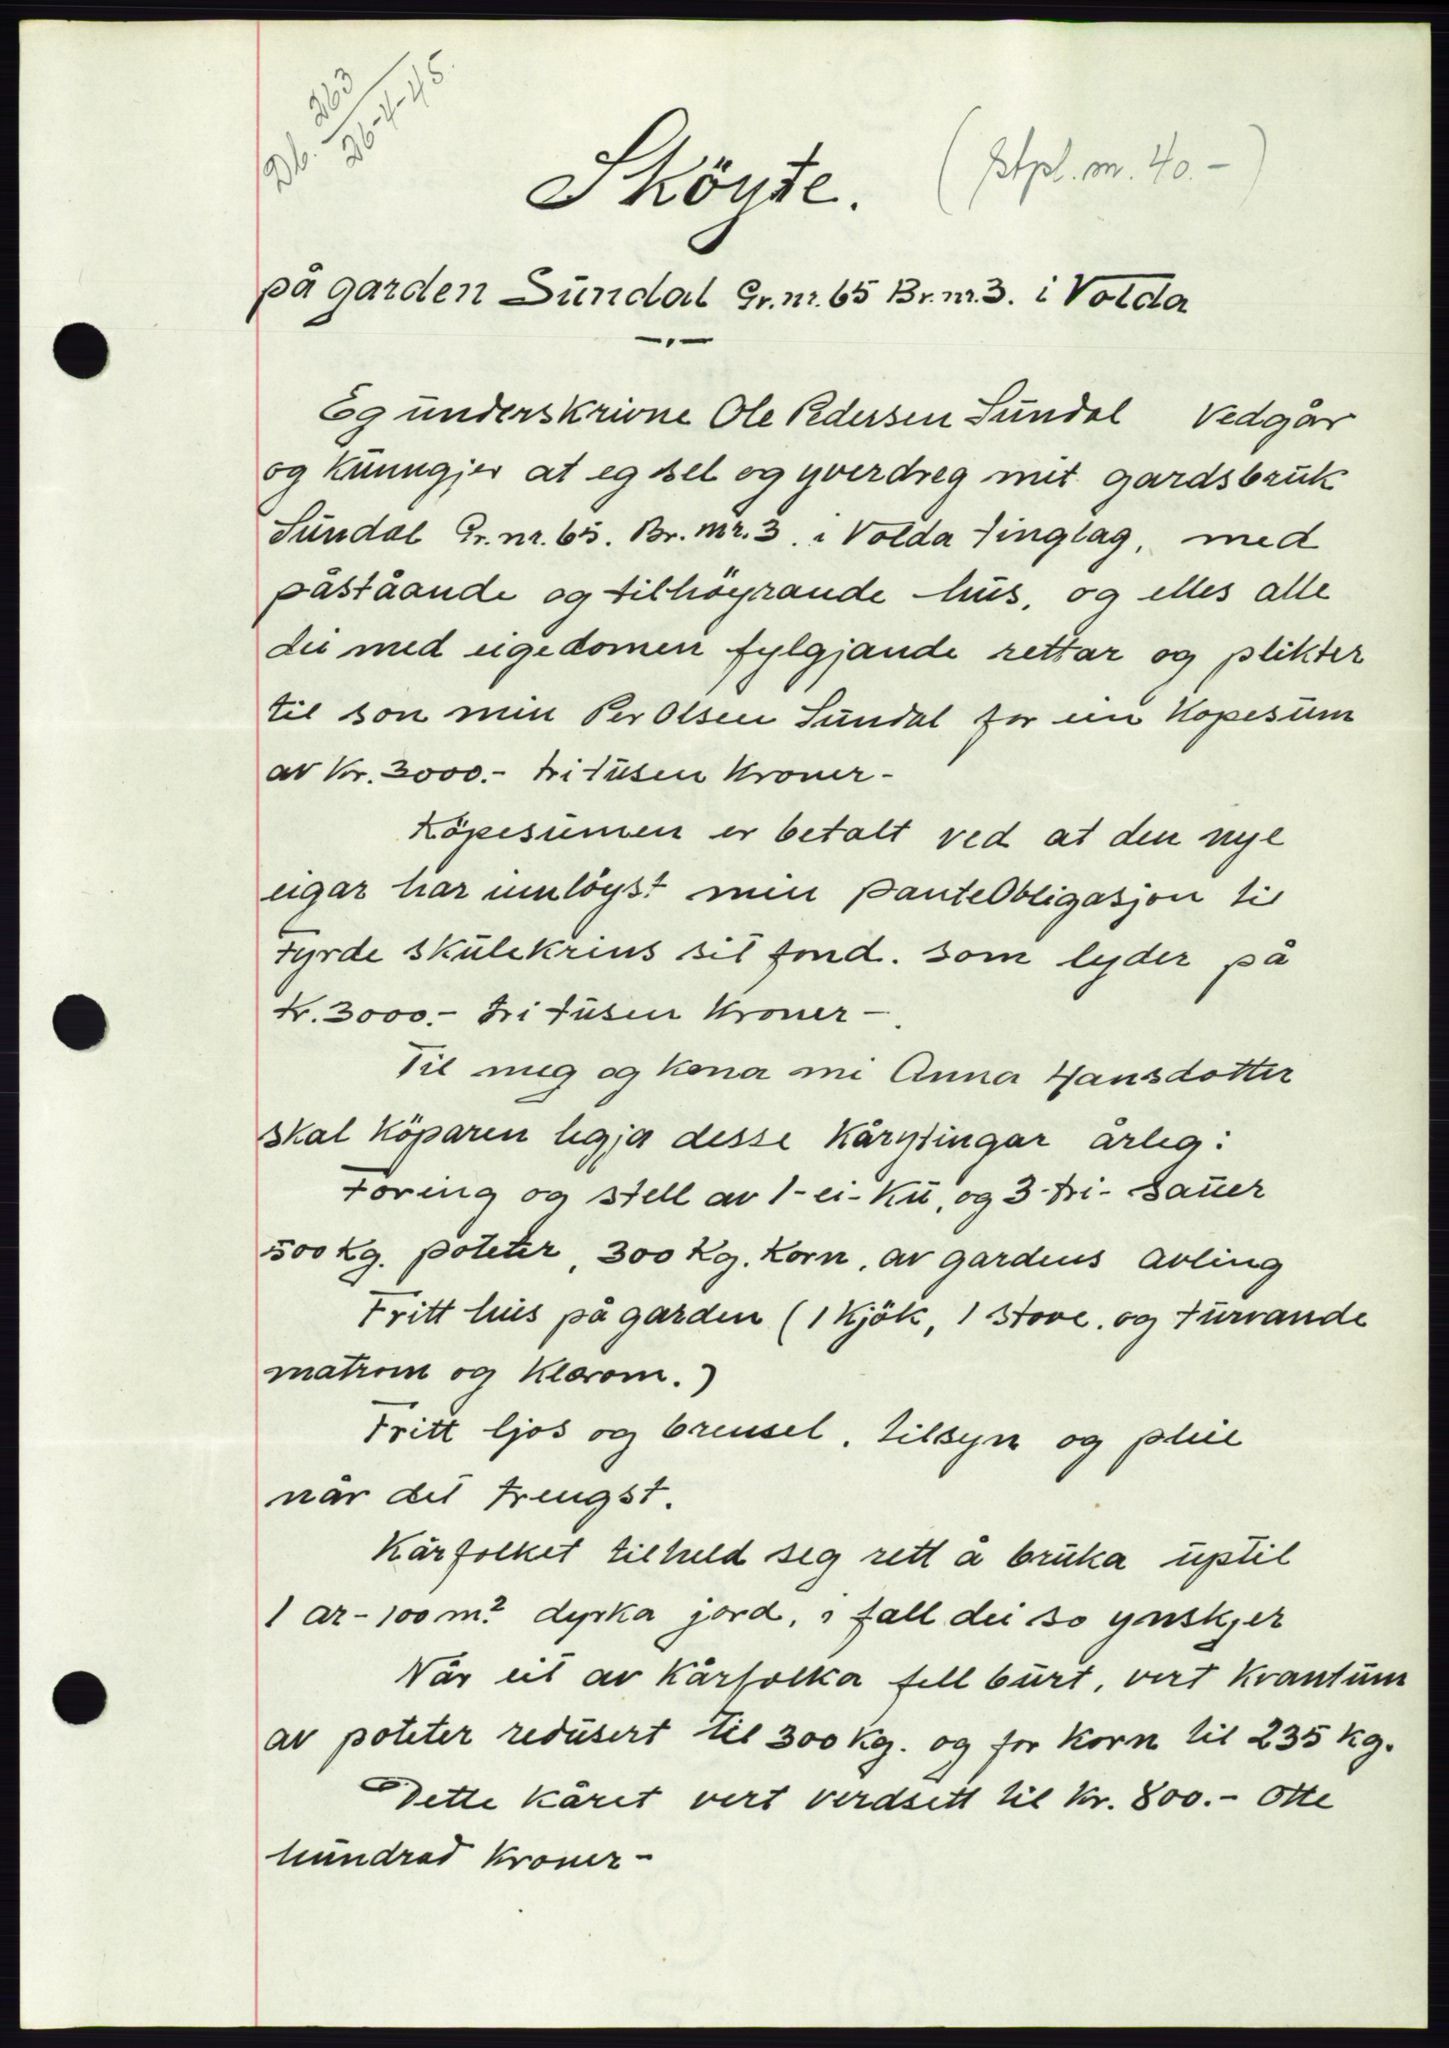 Db. 263
26-4-45.
Sköyte.
(Stpl. m. 40.-)
på garden Sundal Gr.nr. 65 Br.nr. 3. i Volda
Eg underskrivne Ole Pedersen Sundal Vedgår
og kunngjer at eg sel og yverdreg mit gardsbruk
Sundal Gr.nr. 65. Br.nr. 3. i Volda tinglag, med
påståande og tilhöyrande hus, og elles alle
dei med eigedomen fylgjande rettar og plikter
til son min Per Olsen Sundal for ein Kopesum
av Kr. 3000.- tri tusen Kroner-
Köpesumen er betalt ved at den nye
eigar har innlöyst min panteObligasjon til
Fyrde skulekrins sit fond. som lyder på
Kr. 3000.- tri tusen Kroner-.
Til meg og kona mi Anna Hansdotter
skal Köparen legja desse Kårytingar årleg:
Foring og stell av 1-ei-Ku, og 3-tri- Sauer
500 Kg. poteter, 300 Kg. Korn, av gardens avling
Fritt hus på garden (1 kjök, 1 stove. og turvande
matrom og Klærom.)
Fritt ljos og brensel. tilsyn og pleie
når det trengst.
Kårfolket tilheld seg rett å bruka uptil
1 ar-100 m² dyrka jord, i fall dei so ynskjer
Når eit av Kårfolka fell burt, vert Kvantum
av poteter redusert til 300 Kg. og for Korn til 235 Kg.
Dette kåret vert verdsett til Kr. 800.- Otte
hundrad Kroner-